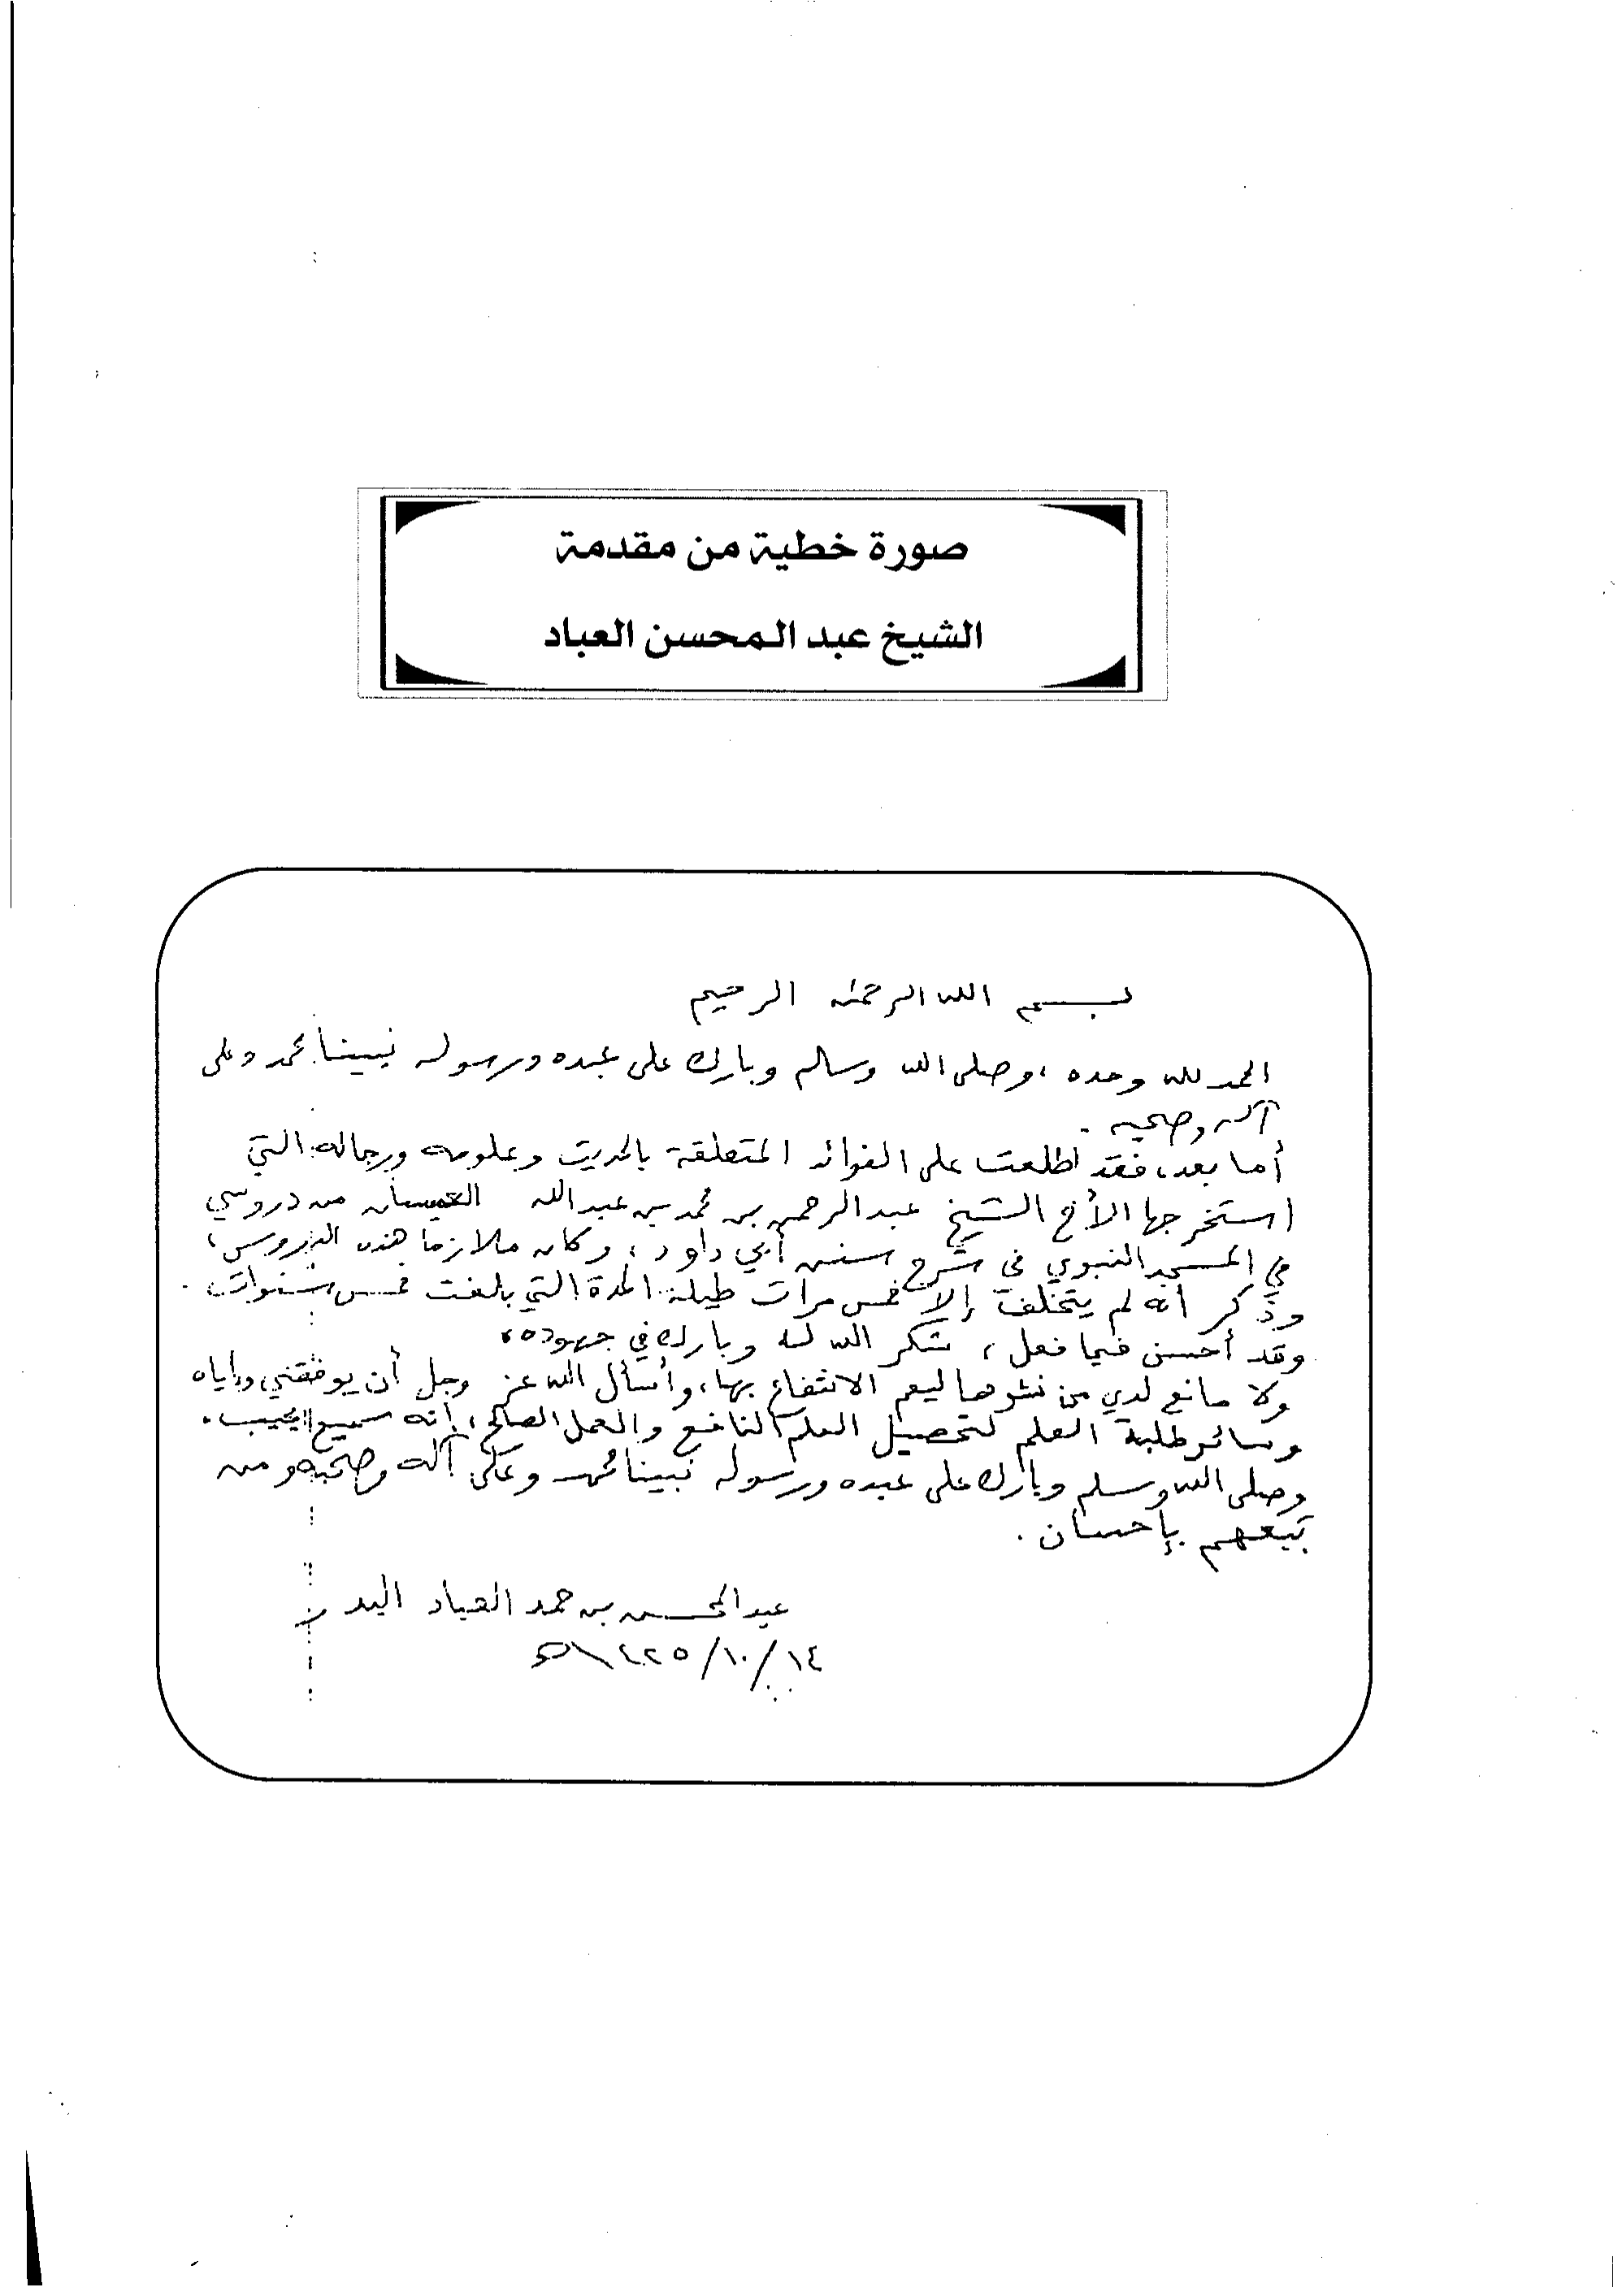 صورة خطية من مقدمة
الشيخ عبد المحسن العباد
بسم الله الرحمن الرحيم
الحمد لله وحده ، وصلى الله وسلم وبارك على عبده ورسوله نبينا محمد وعلى
آله وصحبه .
أما بعد، فقد اطلعت على الفوائد المتعلقة بالحديث وعلومه ورجاله التي
استخرجها الأخ الشيخ عبد الرحمن بن محمد بن عبد الله العميسان من دروسي
في المسجد النبوي في شرح سنن أبي داود ، وكان ملازما هذه الدروس ،
وذكر أنه لم يتخلف إلا خمس مرات طيلة المدة التي بلغت خمس سنوات .
وقد أحسن فيما فعل ، شكر الله له وبارك في جهوده ،
ولا مانع لدي من نشرها ليعم الانتفاع بها ، وأسأل الله عز وجل أن يوفقني وإياه
وسائر طلبة العلم لتحصيل العلم النافع والعمل الصالح ، إنه سميع مجيب .
وصلى الله وسلم وبارك على عبده ورسوله نبينا محمد وعلى آله وصحبه ومن
تبعهم بإحسان .
عبد المحسن بن حمد العباد البدر
١٤/١٠/١٤٢٥هـ